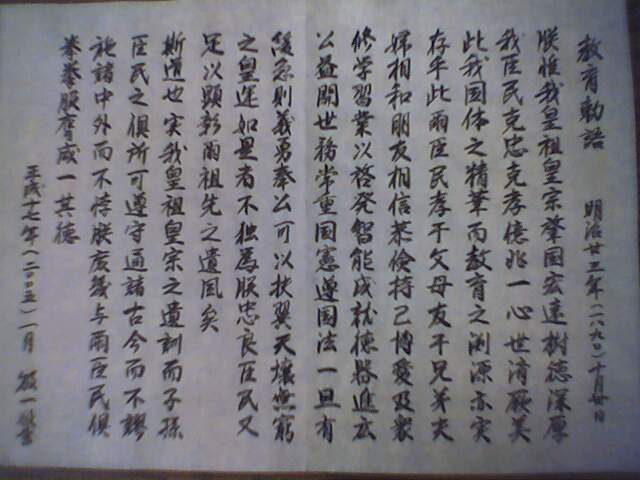 教育勅語 明治廿三年(一八九〇)十月卅日
朕惟我皇祖皇宗肇国宏遠樹徳深厚
我臣民克忠克孝億兆一心世済厥美
此我国体之精華而教育之渊源亦実
存乎此爾臣民孝于父母友于兄弟夫
婦相和朋友相信恭倹持己博愛及衆
修学習業以啓発智能成就徳器進広
公益開世務常重国憲遵国法一旦有
緩急則義勇奉公可以扶翼天壌無窮
之皇運如是者不独為朕忠良臣民又
足以顕彰爾祖先之遺風矣
斯道也実我皇祖皇宗之遺訓而子孫
臣民之倶所可遵守通諸古今而不謬
施諸中外而不悖朕庶幾与爾臣民倶
拳拳服膺咸一其徳
平成十七年(二〇〇五)一月